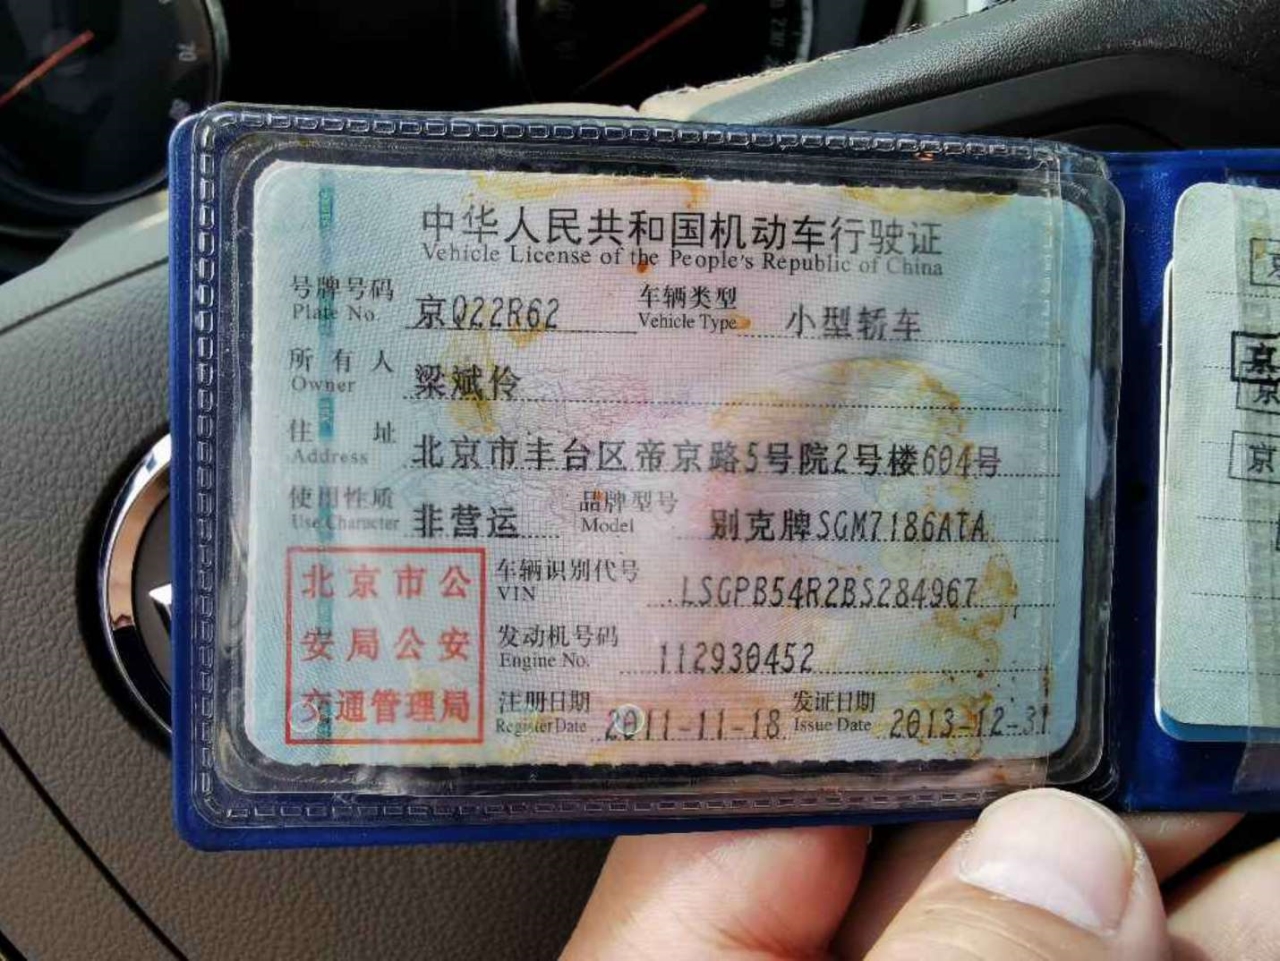 中华人民共和国机动车行驶证
Vehicle License of the People's Republic of China
号牌号码 京Q22R62 车辆类型 小型轿车
Plate No. Vehicle Type
所有人 梁斌伶
Owner
住址 北京市丰台区帝京路5号院2号楼604号
Address
使用性质 非营运 品牌型号 别克牌SGM7186ATA
Use Character Model
北京市公
安局公安
交通管理局
车辆识别代号 LSGPB54R2BS284967
VIN
发动机号码 112930452
Engine No.
注册日期 2011-11-18 发证日期 2013-12-31
Register Date Issue Date
70
京
京
京